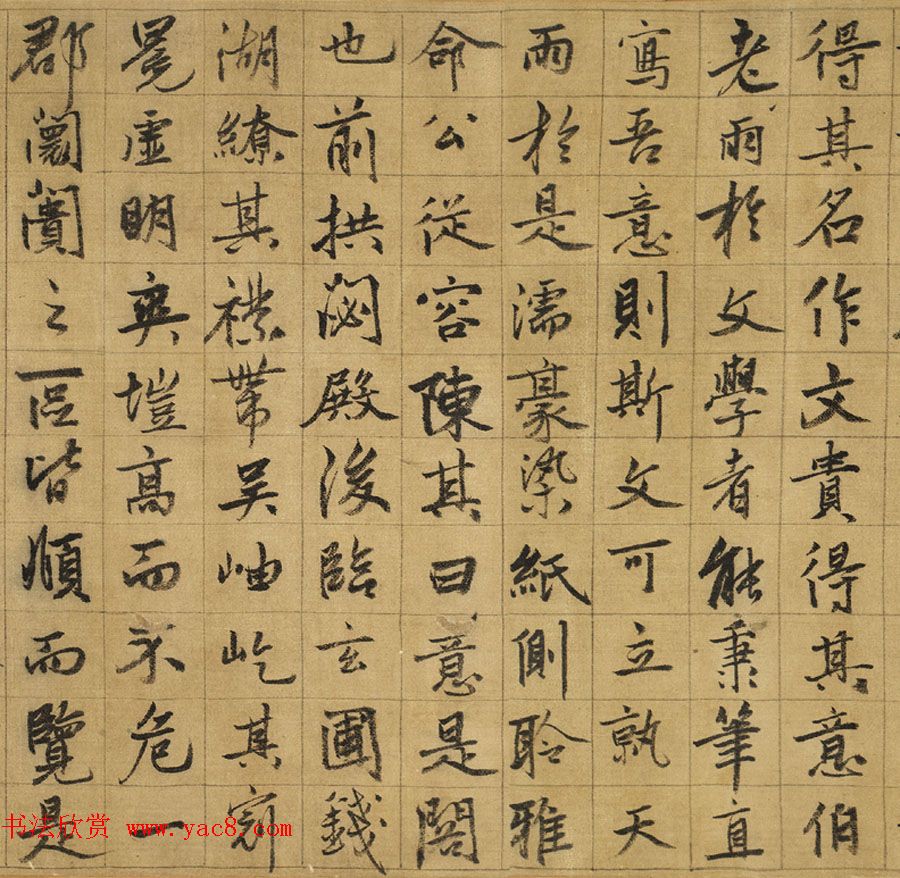 得其名作文貴得其意伯
老雨於文學者能秉筆直
寫吾意則斯文可立孰天
雨於是濡豪染紙側聆雅
命公從容陳其曰意是閤
也前拱閟殿後臨玄圃錢
湖繚其襟帶吴岫屹其
冕虛明爽塏高而不危一
郡闤闠之區皆順而覽是
书法欣赏 www.yac8.com